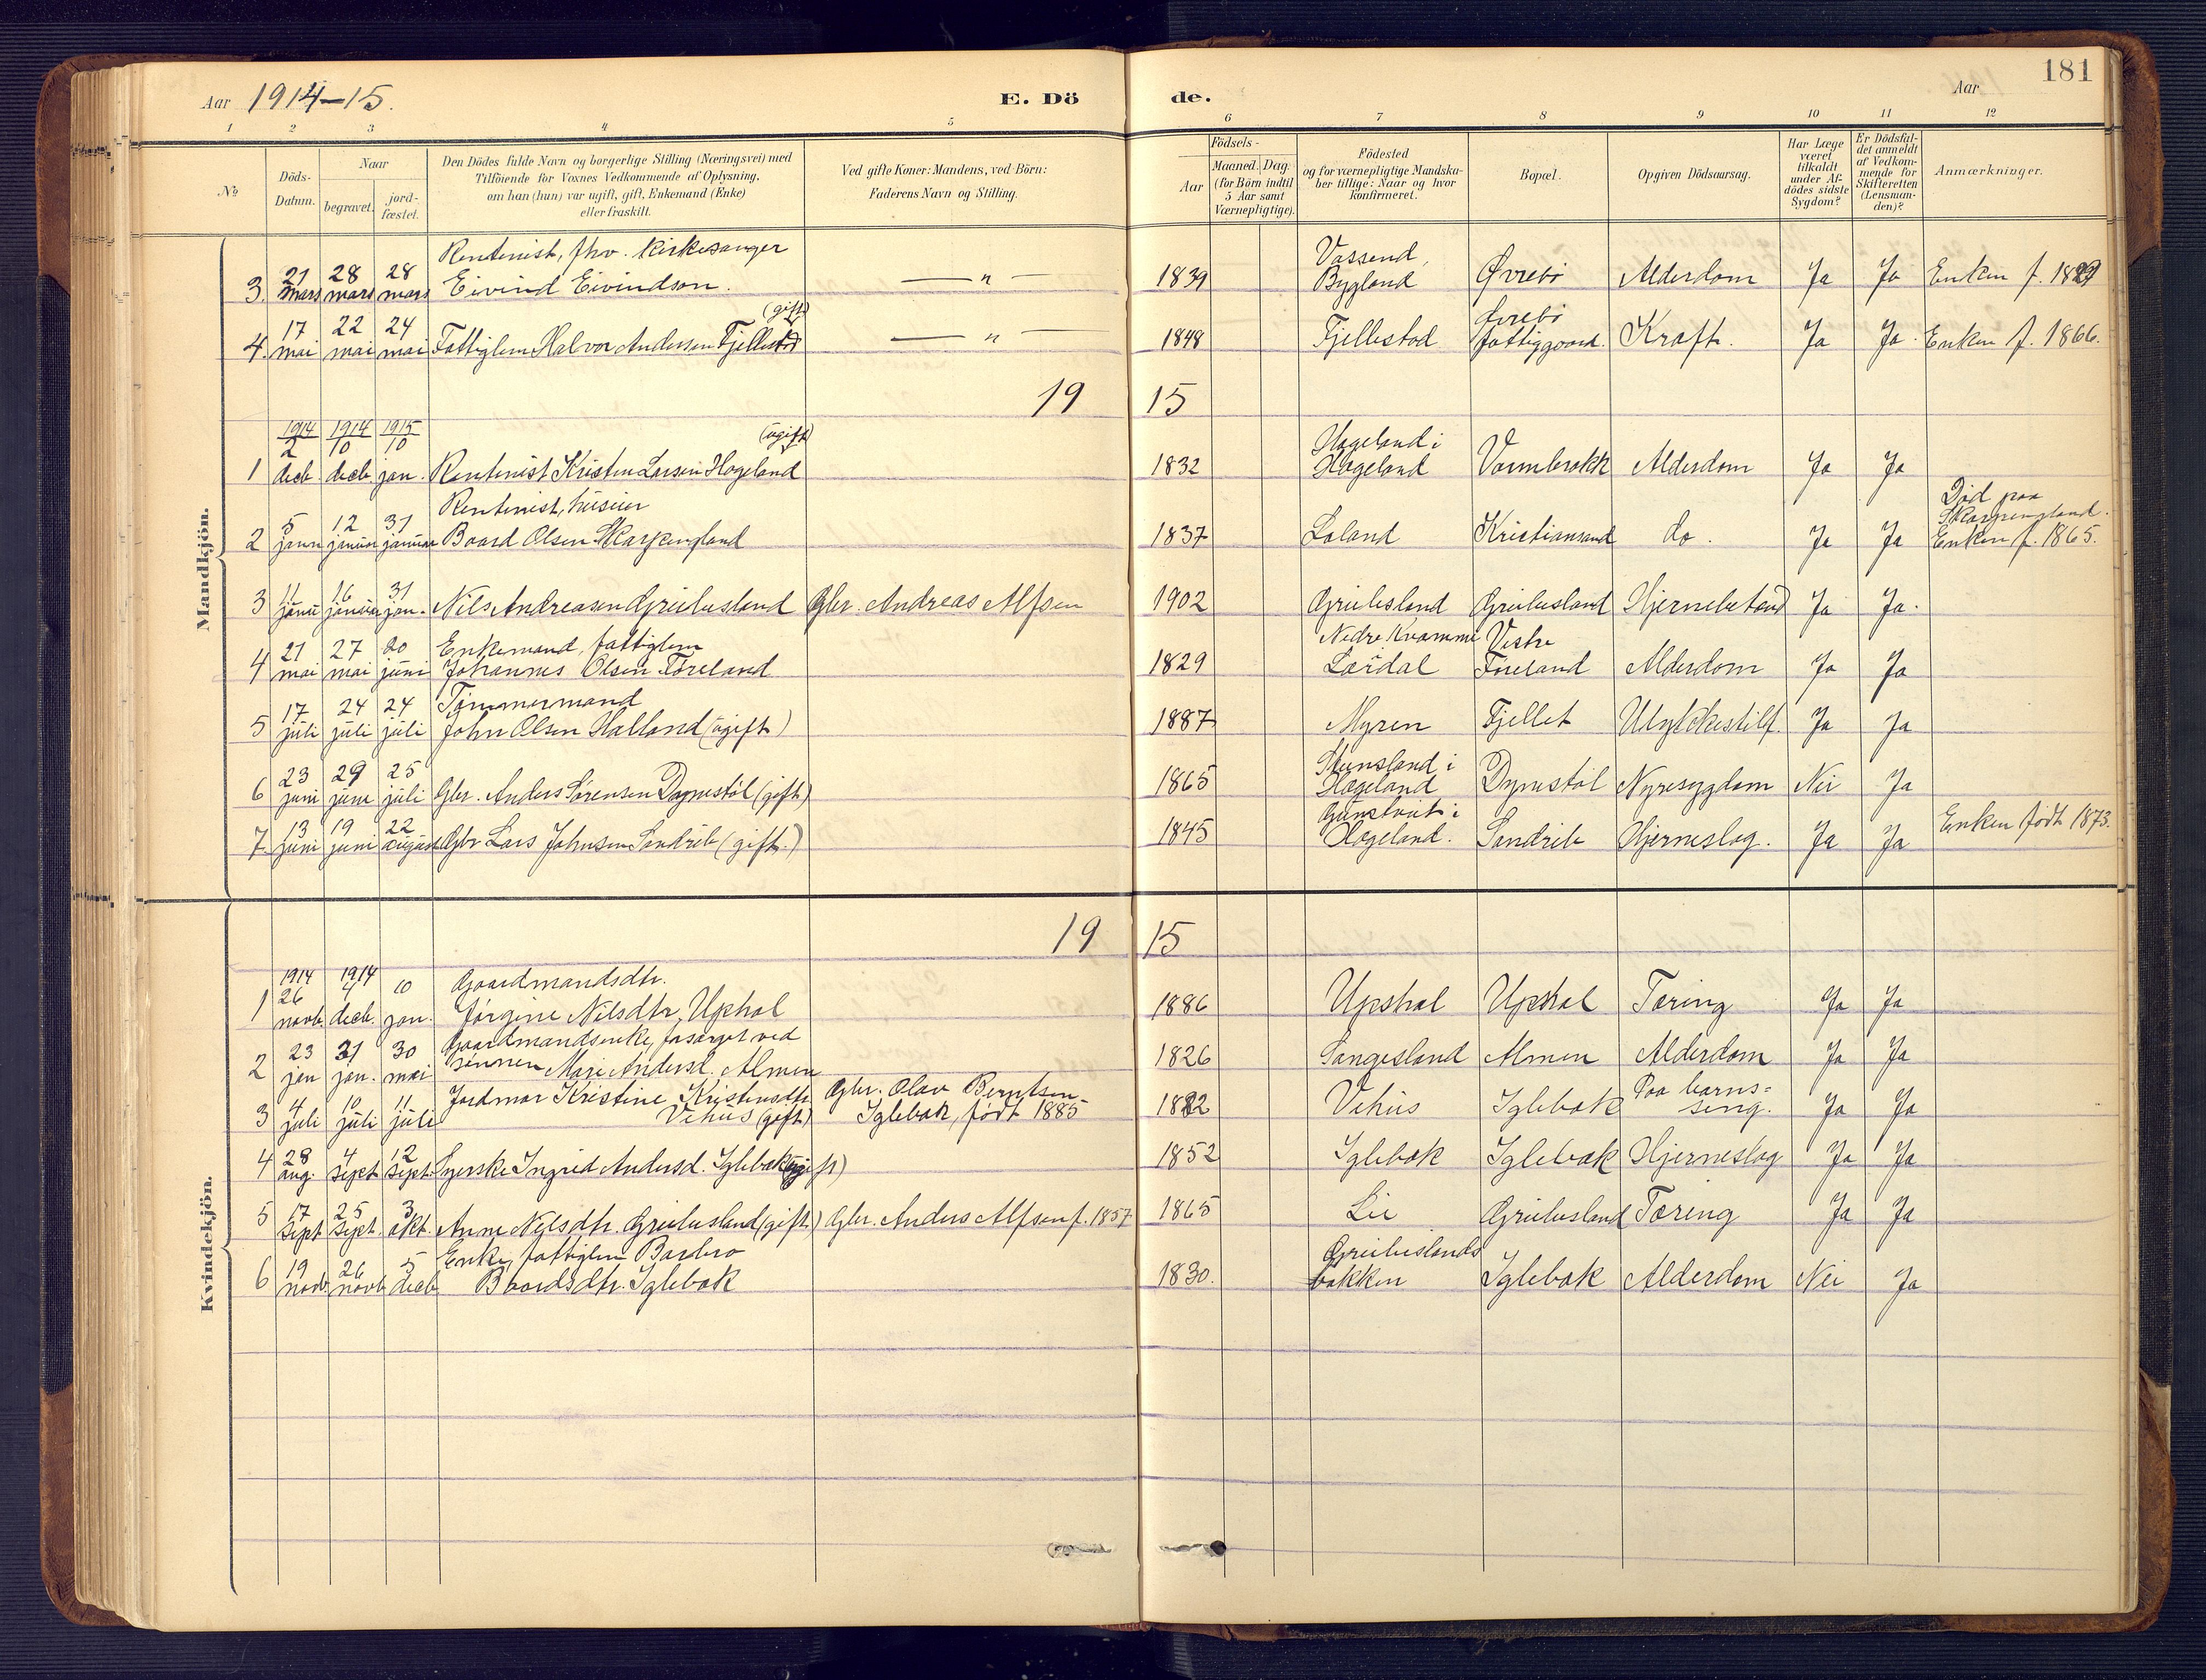 181
Aar 1914-15.
E. Döde.
Aar
1 2 3 4 5 6 7 8 9 10 11 12
No
Döds-Datum.
Naar
begravet.
jord-fæstet.
Den Dödes fulde Navn og borgerlige Stilling (Næringsvei) med
Tilföiende for Voxnes Vedkommende af Oplysning,
om han (hun) var ugift, gift, Enkemand (Enke)
eller fraskilt.
Ved gifte Koner: Mandens, ved Börn:
Faderens Navn og Stilling.
Födsels-
Aar
Maaned. Dag.
(for Börn indtil
5 Aar samt
Værnepligtige).
Födested
og for værnepligtige Mandska-
ber tillige: Naar og hvor
konfirmeret.
Bopæl.
Opgiven Dödsaarsag.
Har Læge
været
tilkaldt
under Af-
dödes sidste
Sygdom?
Er Dödsfal-
det anmeldt
af Vedkom-
mende for
Skifteretten
(Lensman-
den)?
Anmærkninger.
Mandkjön.
Rentenist, fhv. Kirkesanger
3. 21 mars 28 mars 28 mars Eivind Eivindson. — " — 1839 Vassend, Bygland Øvrebö Alderdom Ja Ja Enken f. 1829
4. 17 mai 22 mai 24 mai Fattiglem Halvor Andersen Fjellestad (gift) — " — 1848 Fjellestad Øvrebö fattiggaard. Kræft. Ja Ja. Enken f. 1866.
1915
1 1914 2 decb. 1914 10 decb. 1915 10 jan. Rentenist Kristen Larsen Hægeland (ugift) 1832 Hægeland i Hægeland Vormbrokk Alderdom Ja Ja
Rentenist, huseier
2 5 janu 12 januar 31 januar Baard Olsen Skarpengland 1837 Loland Kristiansand do. Ja Ja Död paa Skarpengland. Enken f. 1865.
3 11 janu 16 januar 31 jan. Nils Andreasen Greibesland Gbr. Andreas Alfsen 1902 Greibesland Greibesland Hjernebetænd Ja Ja.
Enkemand, fattiglem
4 21 mai 27 mai 20 juni Johannes Olsen Föreland 1829 Nedre Kvamme Lærdal Vestre Föreland Alderdom Ja Ja
Tömmermand
5 17 juli 24 juli 24 juli John Olsen Halland (ugift) 1887 Myren Fjellet Ulykkestilf. Ja Ja
6 23 juni 29 juni 25 juli Gbr. Anders Sörensen Dynestöl (gift) 1865 Stensland i Hægeland Dynestöl Nyresygdom Nei Ja
7 13 juni 19 juni 22 august Gbr Lars Johnsen Sandrib (gift.) 1845 Gunstveit i Hægeland. Sandrib Hjerneslag. Ja Ja Enken födt 1873.
Kvindekjön.
1915
Gaardmandsdtr.
1 1914 26 novb. 1914 4 decb. 10 jan. Jörgine Nilsdtr. Upshol 1886 Upshol Upshol Tæring Ja Ja
Gaardmandsenke, forsörget ved
2 23 jan 31 jan. 30 mai sönnen Mari Andersd. Almen 1826 Sangesland Almen Alderdom Ja Ja
3 4 juli 10 juli 11 juli Jordmor Kristine Kristensdtr Vehus (gift) Gbr. Olav Berntsen Iglebæk, födt 1885 1882 Vehus Iglebæk Paa barns-seng. Ja Ja
4 28 aug. 4 sept 12 sept. Syerske Ingrid Andersd. Iglebæk (ugift) 1852 Iglebæk Iglebæk Hjerneslag Ja Ja
5 17 sept 25 sept. 3 okt. Anne Nilsdtr. Greibesland (gift.) Gbr. Anders Alfsen f. 1857 1865 Lie Greibesland Tæring Ja Ja
Enke, fattiglem Barbro
6 19 novb. 26 novb 5 decb Baardsdtr. Iglebæk 1830. Greibeslands bakken Iglebæk Alderdom Nei Ja